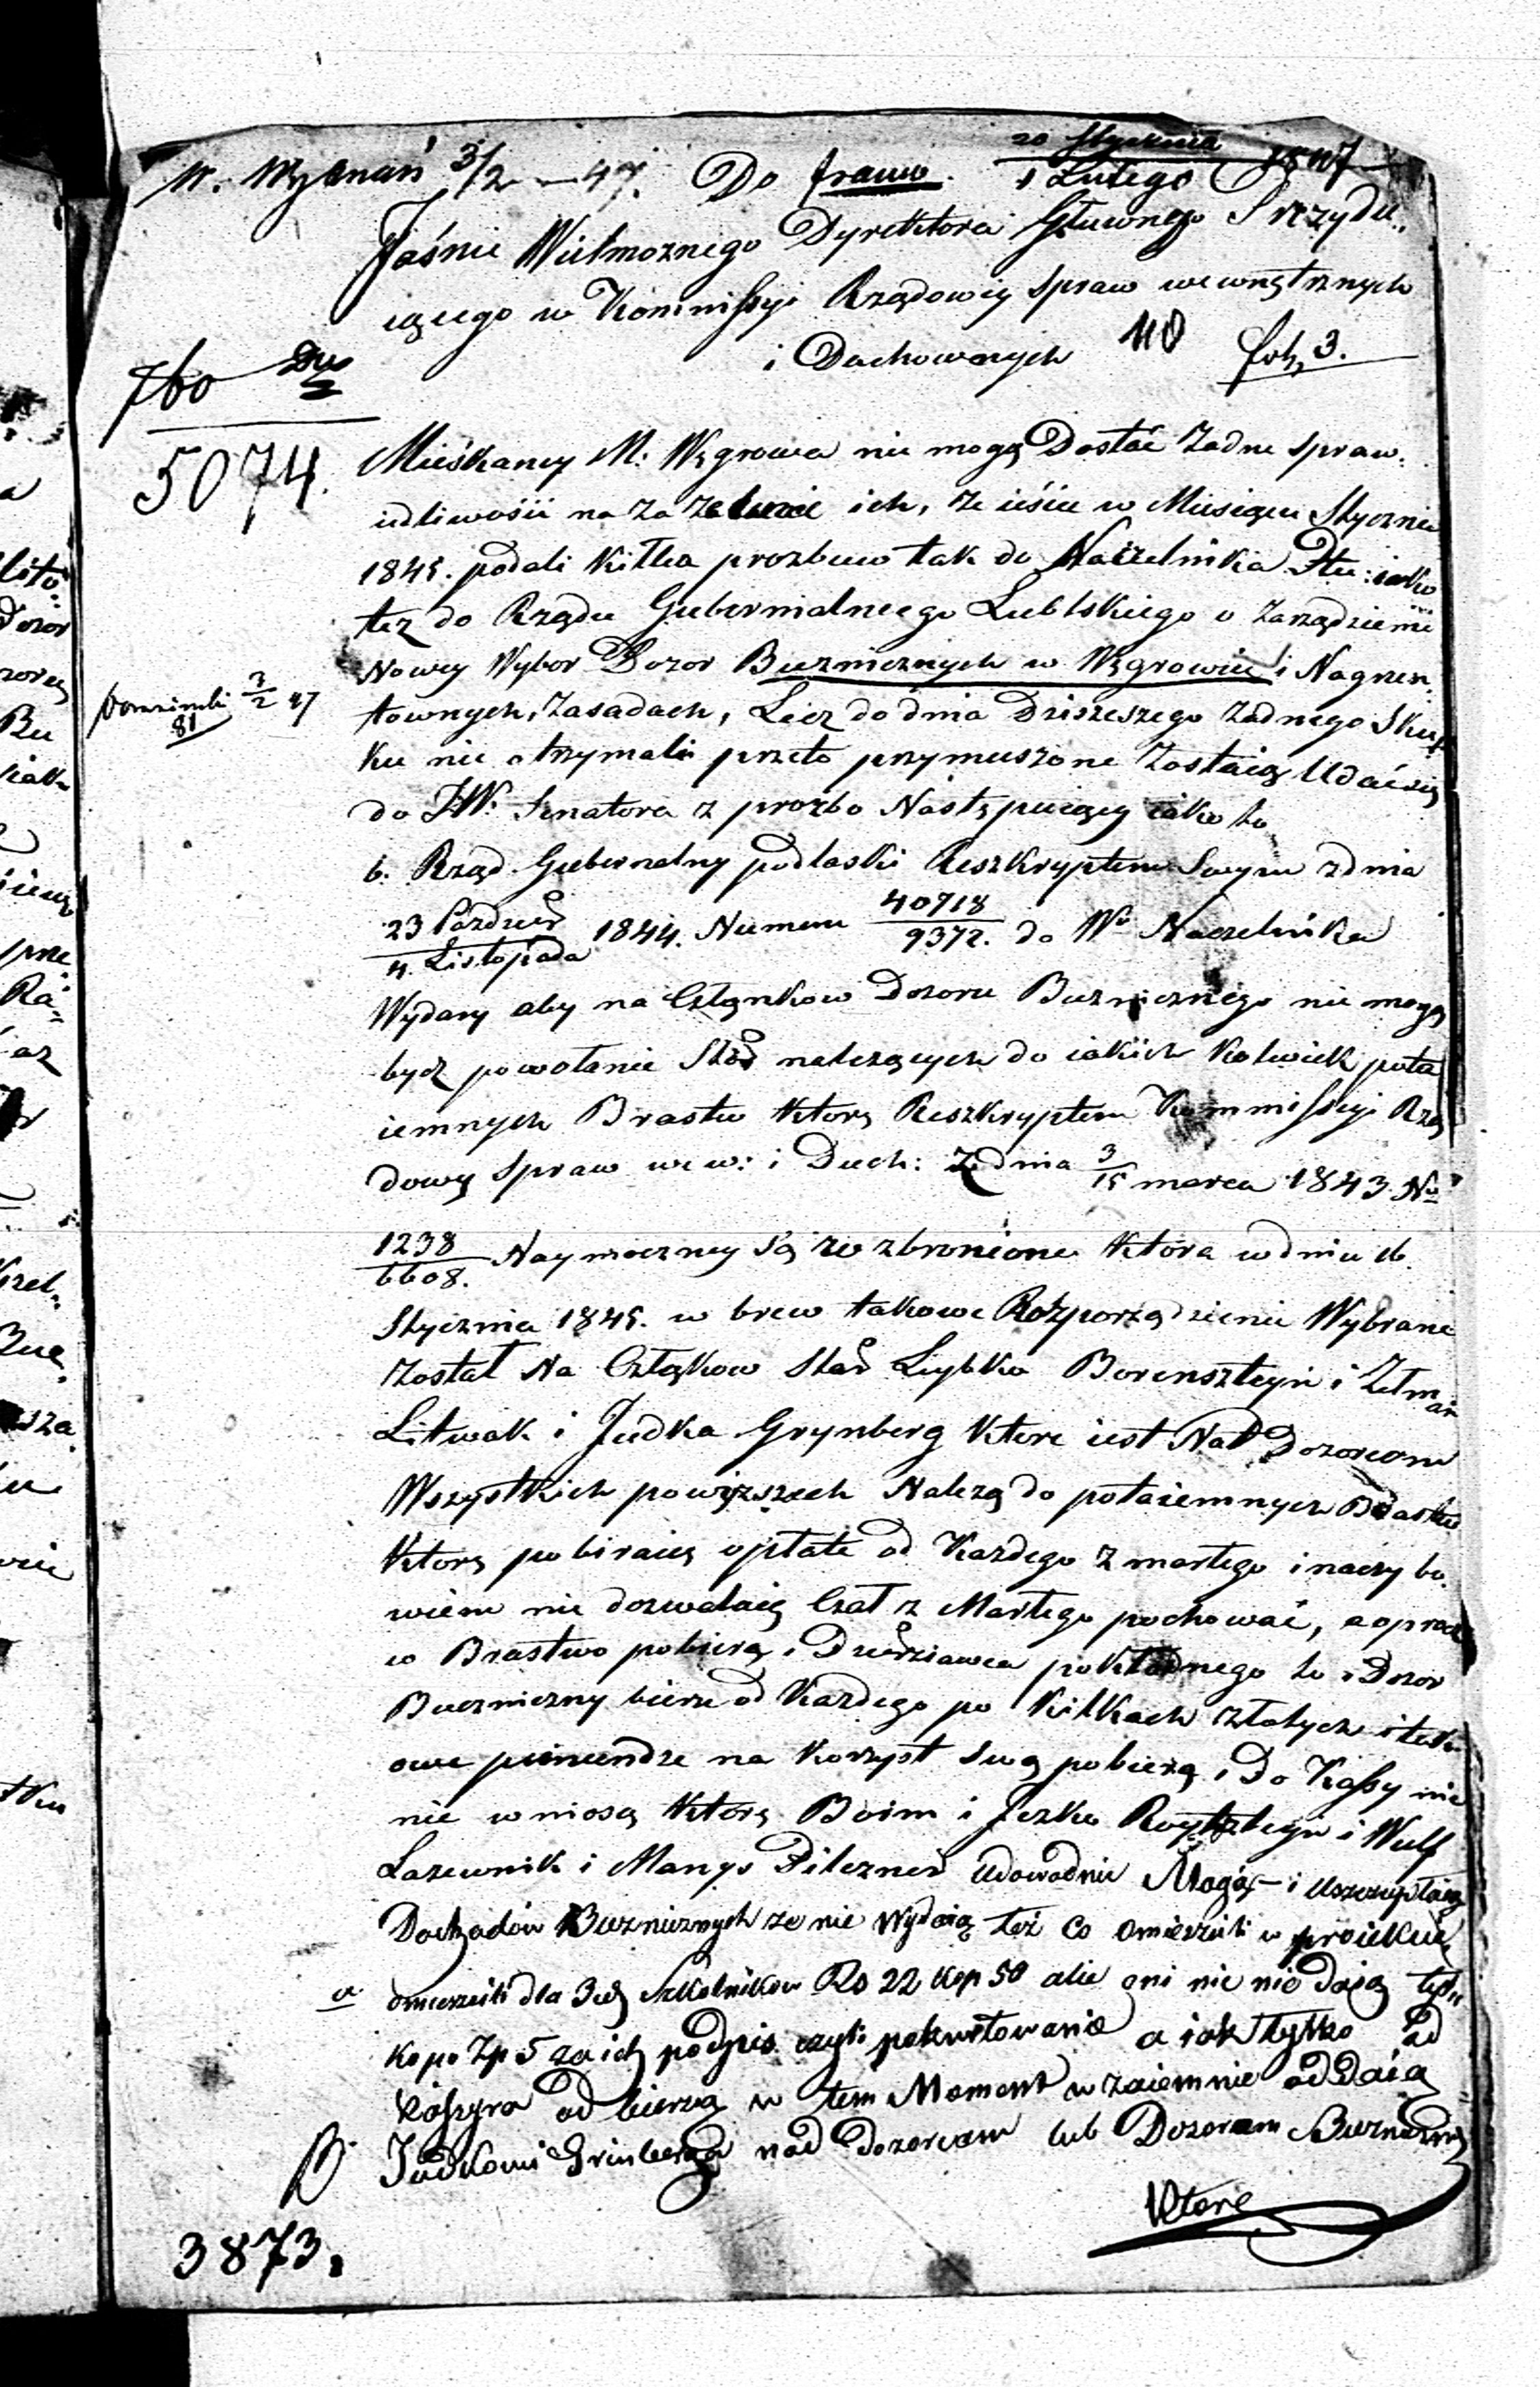 W. Wyznań 3/2 – 47. Do
20 Stycznia
1 Lutego 1847
Jaśnie Wielmoznego Dyrektora Głuwnego Prezydu..
iącego w Kommissyi Rządowey Spraw wewnętrznych
i Duchownych 110 3.
760
5074.
Mieśkancy M: Węgrowa nie mogą Dostać Zadne spraw:
iedliwośii na Za Zalenie ich, Ze ieście w Miesiącu Stycznia
1845. podali kilka prozbuw tak do Naczelnika Ptu: iako
tez do Rządu Gubernialneego Lublskiego o Zarządzienie
Nowey Wybor Dozor Buznicznych w Węgrowiu i Nagrun.
townych, Zasadach, Lecz do dnia Dziszeszego Zadnego Skut
ku nie otrzymali przeto przymuszone Zostaią Udać się
do JW: Senatora z prozbo Następuiącey iako to
b. Rząd Gubernalny podlaski Reszkryptem Swym z dnia
23 Pazdzier
4. Listopada 1844. Numeru 40718
9372. do Wo Naczelnika
3/2 47
81
Wydany aby na Cztąnkow Dozoru Buzniczniego nie mogą
bydz powołanie Star nalezących do iakiich kolwiek pota
iemnych Brastw Ktorę Reszkryptem Kommissyi Rzą
dowy Spraw wew: i Duch: Z dnia 3/15 marca 1843 No
1238
6608. Naymoczney Są ze zbronione Ktora w dniu 16.
Stycznia 1845. w brew takowe Rozporządzienie Wybrane
Został Na Cztąkow Star Leybko Borenszteyn i Zelman
Litwak i Judka Grynberg Ktore iest Nad Dozorcom
Wszystkich powięzszech Nalezą do potaiemnych Brastw
Ktorę pobiraią opłate od Kazdego Zmartego inaczy bo.
wiem nie dozwalaią Ciał z Martego pochować, a oprocz
to Brastwo pobierą i Dzierziawca pokładnego to i Dozor
Buzniczny bierze od Kazdego po Kilkach złotych i tak
owe pinendze na Korzyst Swą pobierą, i Do Kassy nic
nie wniosą Ktorę Boim i Jczko Roytzteyn i Wulf
Lazewnik i Manys Pilczner Udowodnie Mogą – i Uszczuplaią
Dochodów Buznicznych ze nie Wydaią też Co omieszcili w proiekcie,
a omieszcili dla 3ch Szkolnikow Rs 22 kop 50 alie oni nie nie daią tyl..
ko po Zp 5 za ich podpis czyli pokwitowania a iak tylko od
Kassyra od bierzą w tem Moment w zaiemnie od daią
B. Judkowi Grinberga nad dozorcom lub Dozorom Buznicznej
Ktore
3873.